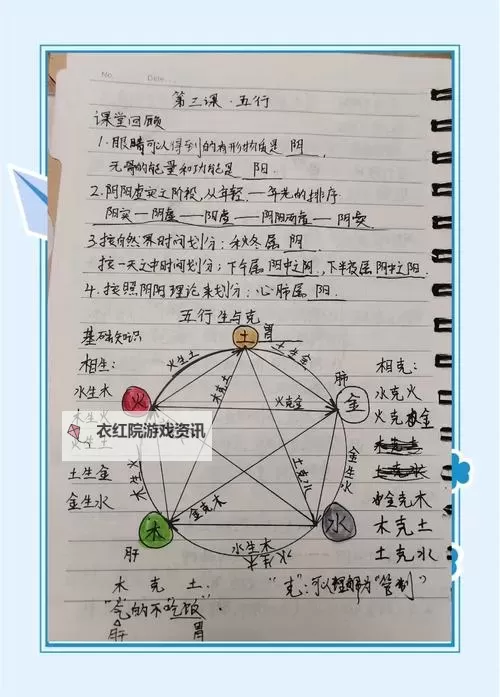 No.
Date.
第三课·五行
课堂回顾
1.眼睛可以得到的有形物质是 阴
的能量和功能是 阳.
2.阴阳虚实之阶段,从年轻一年老的排序
阳实—阴虚—阳虚—阴阳两虚—阴实
3.按自然界时间划分:秋冬属 阴
按一天之中时间划分:下午属 阴中之阴,下半夜属 阴中之阳.
4.按照阴阳理论来划分:心肺属 阳.
五行生与克
基础知识
相生:
水生木
木生火
火生土
土生金
金生水
土
胃
火生土
土生金
木克土
火
火克金
肺
金
木生火
土克水
金生水
金克木
木
肝
水
水生木
相克:
水克火
火克金
金克木
木克土
土克水
衣红院游戏资讯
木 克 土:
"克":可以理解为"管制"
"气的不吃饭".
肝 胃